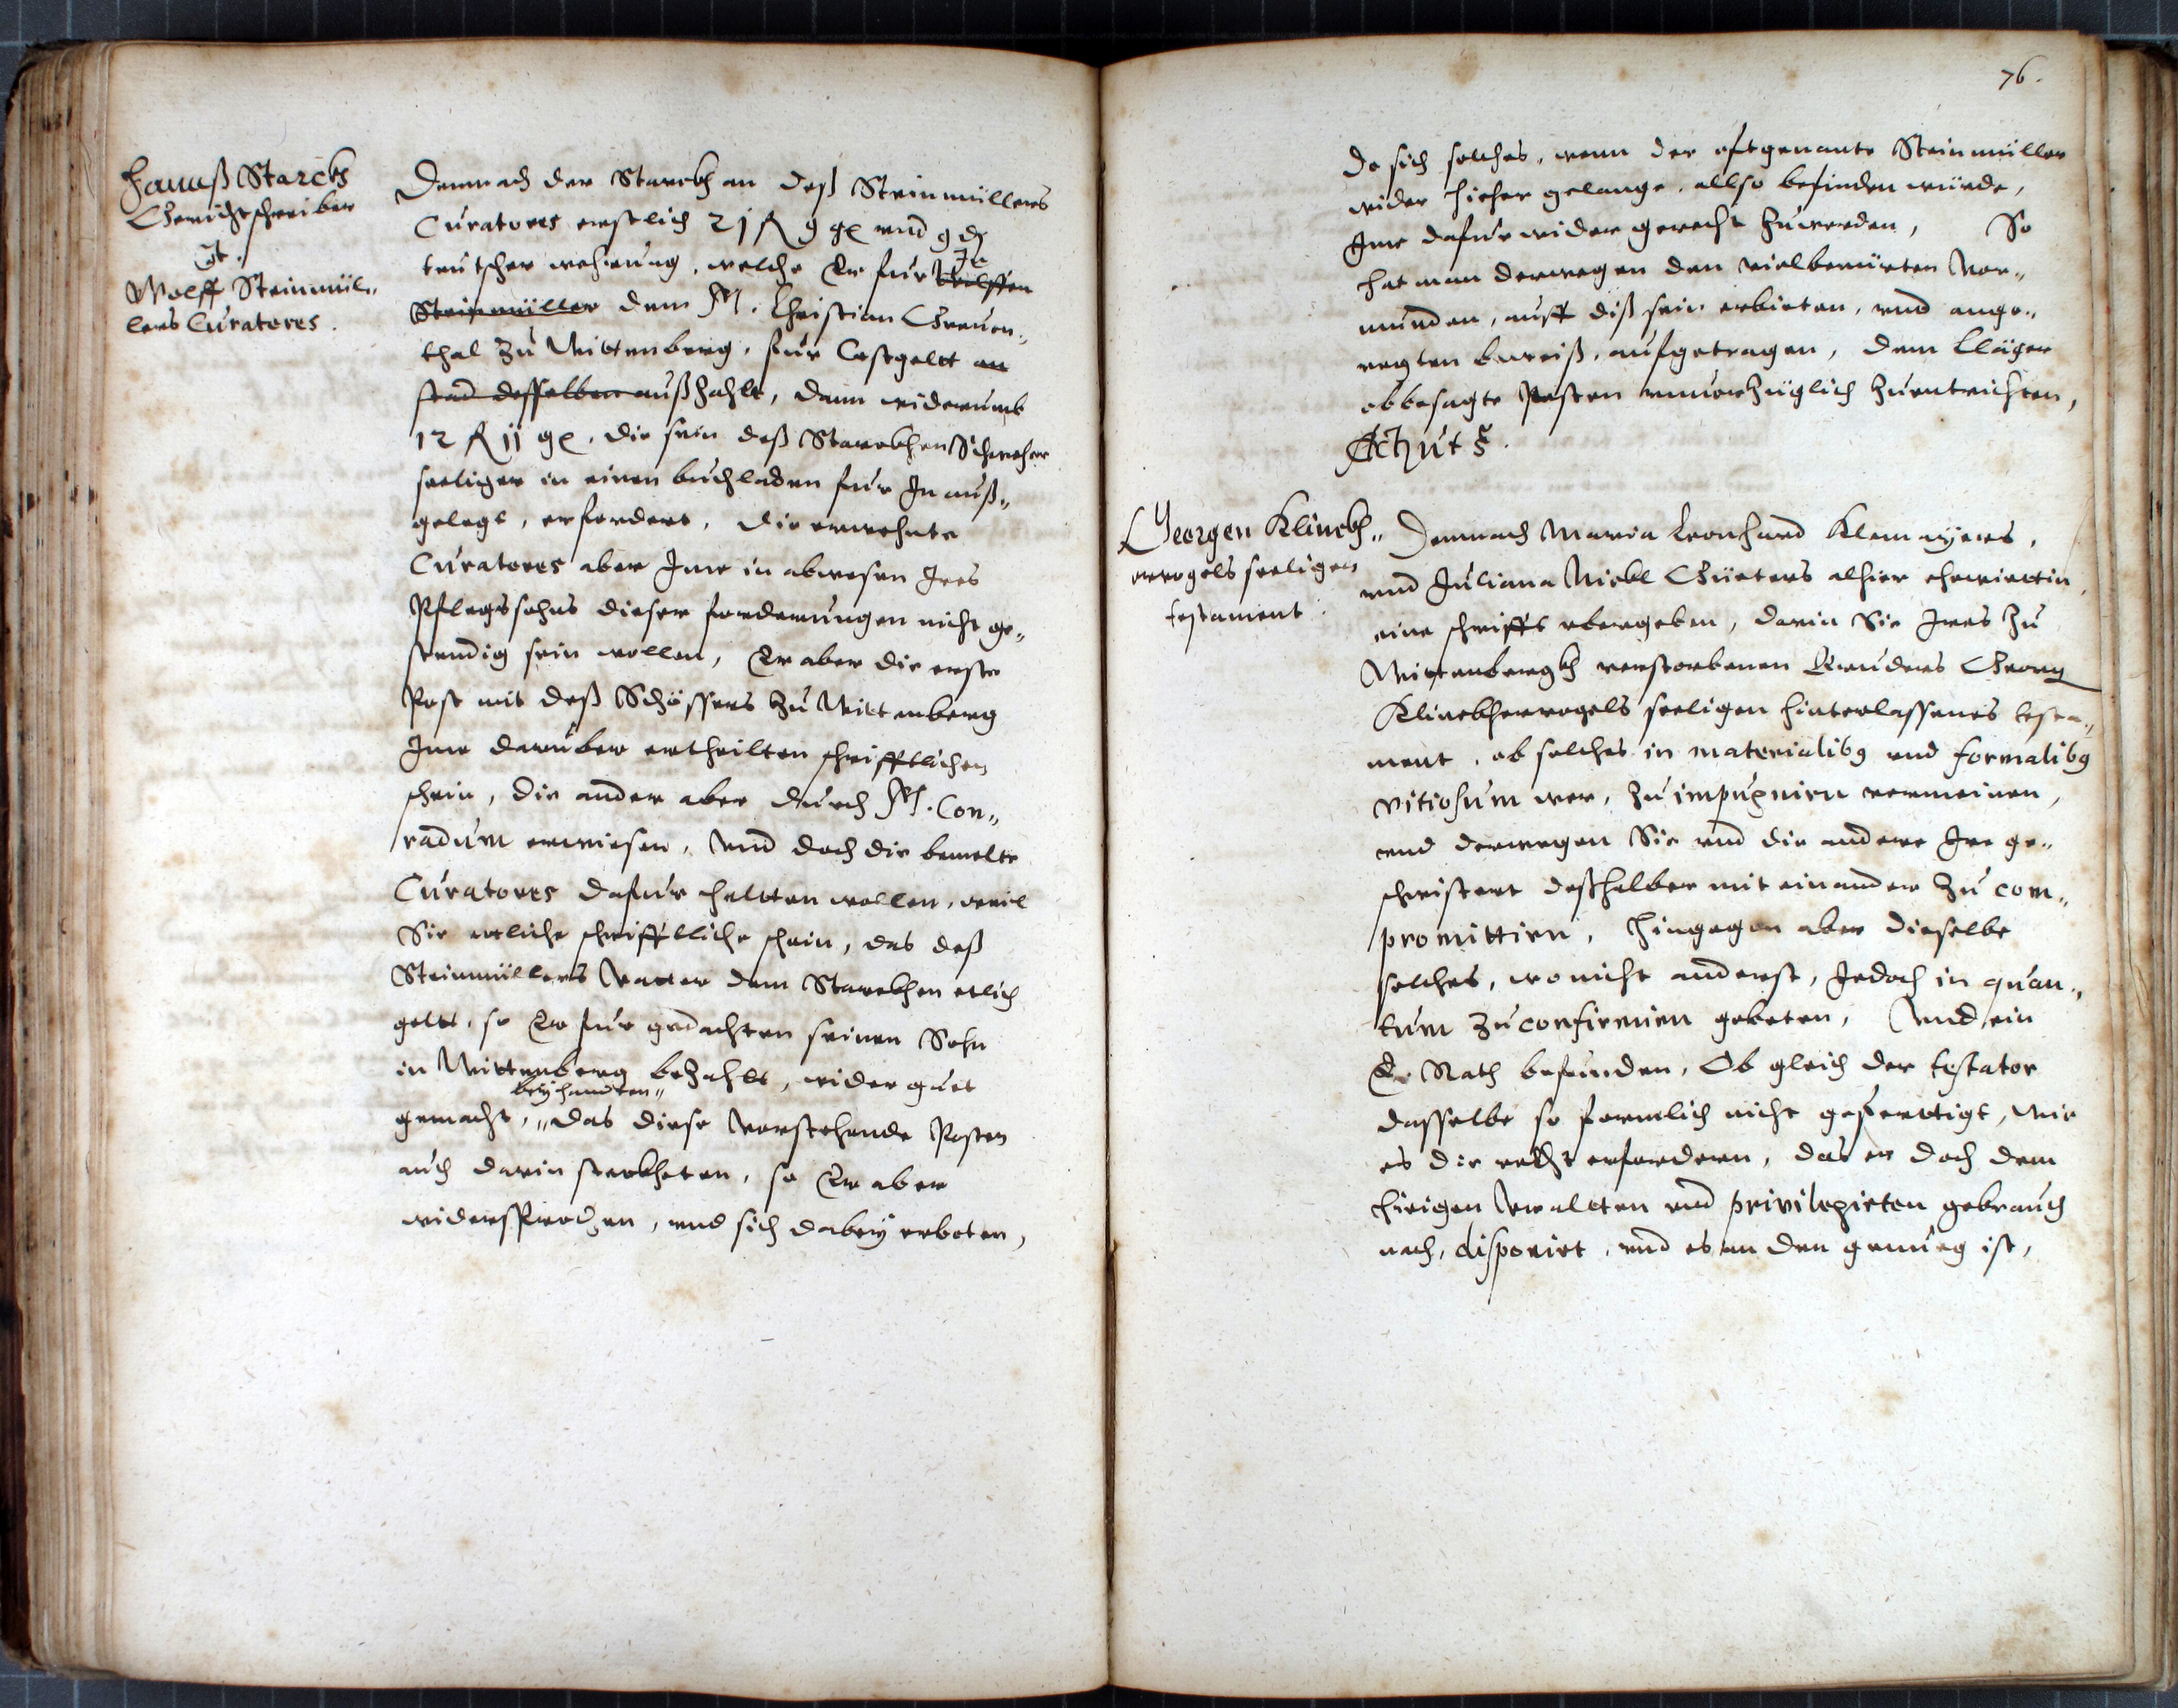 Hannß Starckh
Gerichtschreiber
ct.
Wolff Steinmül„
lers Curatores.
Demnach der Starckh an deß Steinmüllers
Curatores erstlich 21 fl 9 gr vnd 9 d
teutscher wehrung, welche Er fur Wolffen
In
Steinmüller dem M. Christian Greuen„
thal zu Wittenberg, fur Costgeltt an
stad desselben außzahlt, dann widerumb
12 fl 11 gr. die sein deß Starckhen Schweher
seeliger in einen buchladen fur In auß„
gelegt, erfordert, die ernehnte
Curatores aber Ime in abwesen Ires
Pflegssohns dieser forderungen nicht ge„
stendig sein wollen, Er aber die erste
Post mit deß Schössers zu Wittenberg
Ime daruber ertheilten schrifftlichen
schein, die ander aber durch M. Con„
radum erwiesen, Vnd doch die bemelte
Curatores dafur haltten wollen, weil
Sie etliche schrifftliche schein, das deß
Steinmüllers Vatter dem Starckhen etlich
geltt, so Er fur gedachten seinen Sohn
in Wittenberg bezahlt, wider guet
bey handten„
gemacht, „das diese Vorstehende Posten
auch darin steckheten, so Er aber
widersprochen, vnd sich dabey erboten,
76.
do sich solches, wenn der oftgenante Steinmüller
wider hieher gelange, allso befinden würde,
Ime dafur wider gerecht zuwerden, So
hat man derwegen den vielberürten Vor„
munden, auff diß sein erbieten, vnd ange„
regten beweiß, aufgetragen, dem Cläger
obbesagte Posten vnuorzüglich zuentrichten,
Act ut s.
Georgen Klinckh„
ervogels seeligen
testament.
Demnach Maria Leonhard Klemayers,
vnd Juliana Nickl Gürters alhier ehewirttin,
eine schrifft vbergeben, darin Sie Ires zu
Wittenbergkh verstorbenen Bruders Georg
Klinckhervogels seeligen hinterlassenes testa„
ment, ob solches in materialib9 und formalib9
vitiosum wer, zu impugnirn vermeinen,
vnd derwegen Sie vnd die andere Ire ge„
schwistert deßhalber mit einander zu com„
promittirn, Hingegen aber dieselbe
solches, wo nicht anderst, Jedoch in quan„
tum zu confirmirn gebeten, Vnd ein
E. Rath befunden, Ob gleich der testator
dasselbe so formlich nicht gefertigt, wie
es die recht erfordern, das er doch dem
hieigen Vralten vnd privilegirten gebrauch
nach, disponirt, vnd es an den genueg ist,